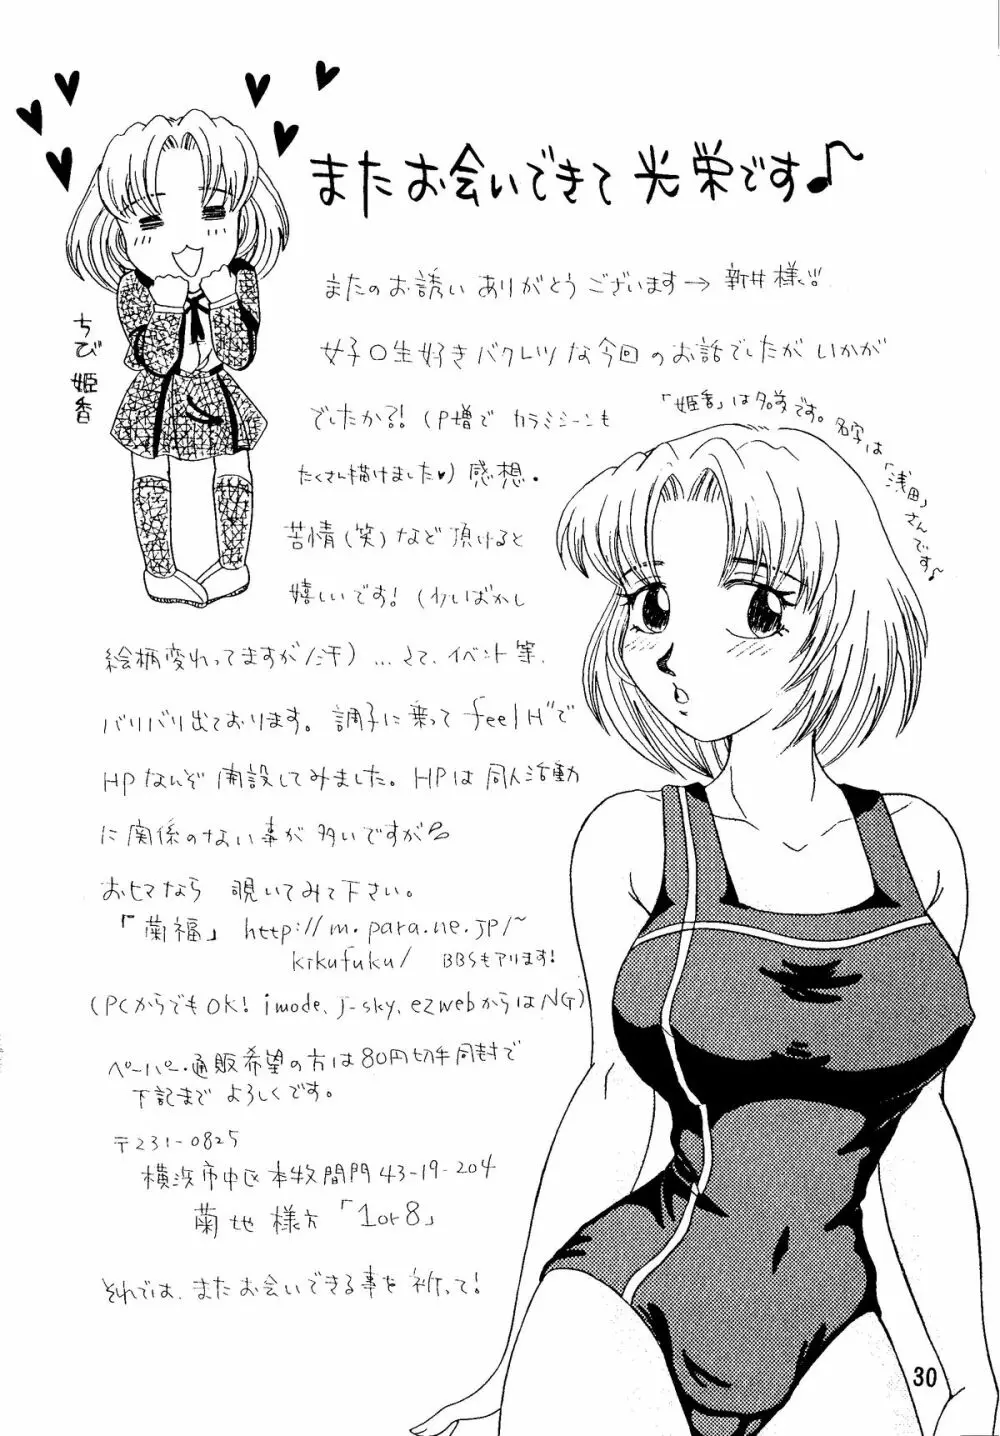 またお会いできて光栄です♪
ちび姫香
またのお誘いありがとうございます→新井様!!
女子○生好きバクレツな今回のお話でしたがいかが
でしたか?! (P増でカラミシーンも
たくさん描けました♥) 感想・
苦情(笑)など頂けると
嬉しいです! (わいばかし
絵柄変わってますが/汗) …さて、イベント等、
バリバリ出ております。調子に乗ってfeelH"で
HPなんぞ開設してみました。HPは同人活動
に関係のない事が多いですが
おヒマなら 覗いてみて下さい。
「蘭福」 http://m.para.ne.jp/~
kikufuku/ BBSもアリます!
(PCからでもOK! imode、j-sky、ezwebからはNG)
ペーパー・通販希望の方は80円切手同封で
下記まで よろしくです。
〒231-0825
横浜市中区本牧間門43-19-204
菊地様方「1or8」
それでは、またお会いできる事を祈って!
「姫香」は名前です。名字は「浅田」さんです♪
30